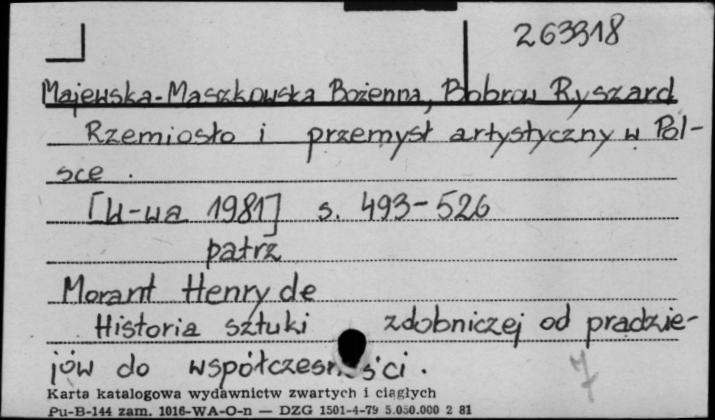 263318
Majewska-Maszkowska Bożenna, Bobrow Ryszard
Rzemiosło i przemysł artystyczny w Pol-
sce.
[W-wa 1981] s. 493-526
patrz
Morant Henry de
Historia sztuki zdobniczej od pradzie-
jów do współczesności.
7
Karta katalogowa wydawnictw zwartych i ciągłych
Pu-B-144 zam. 1016-WA-O-n — DZG 1501-4-79 5.050.000 2 81